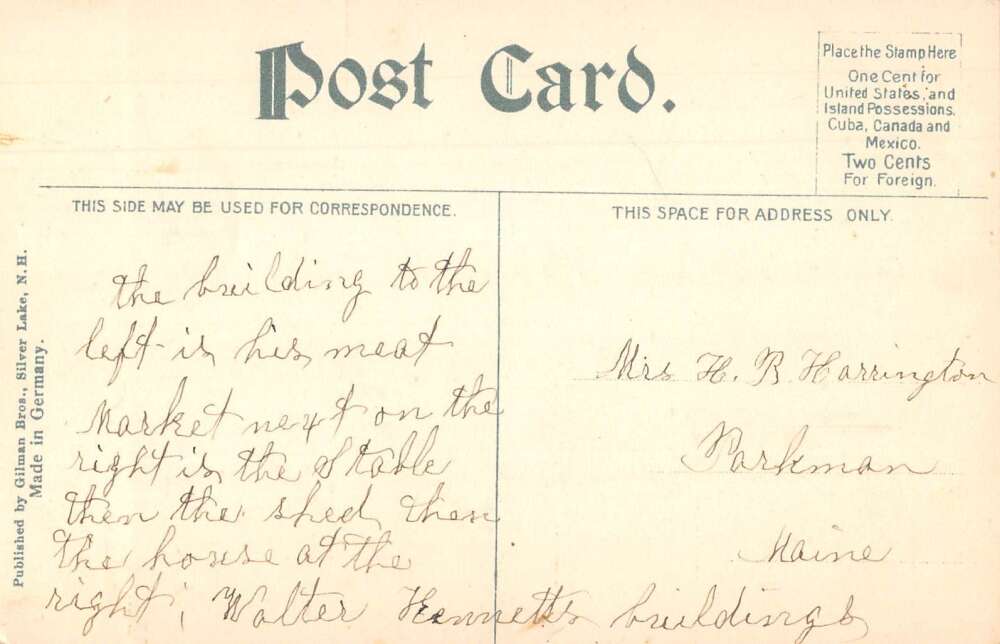 Post Card.
Place the Stamp Here
One Cent for
United States, and
Island Possessions.
Cuba, Canada and
Mexico.
Two Cents
For Foreign.
THIS SIDE MAY BE USED FOR CORRESPONDENCE.
THIS SPACE FOR ADDRESS ONLY.
Published by Gilman Bros., Silver Lake, N. H.
Made in Germany.
the building to the
left is his meat
Market next on the
right is the Stable
then the shed then
the house at the
right, Walter Kennetts buildings
Mrs H. B Harrington
Parkman
Maine